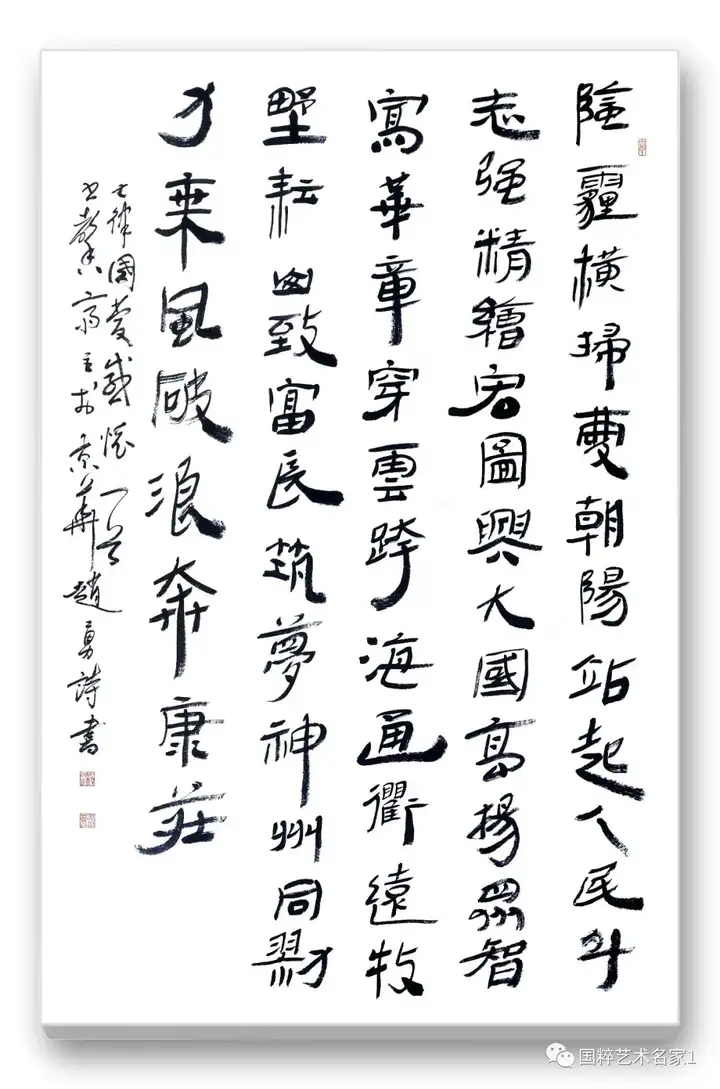 陰霾橫掃朝陽站起人民斗
志强精繪宏圖興大國高揚眾智
寫華章穿雲跨海通衢遠牧
野耘田致富長筑夢神州同勠
力乘風破浪奔康莊
七律國慶感懷一首
馨齋主於京華趙勇詩書
国粹艺术名家1